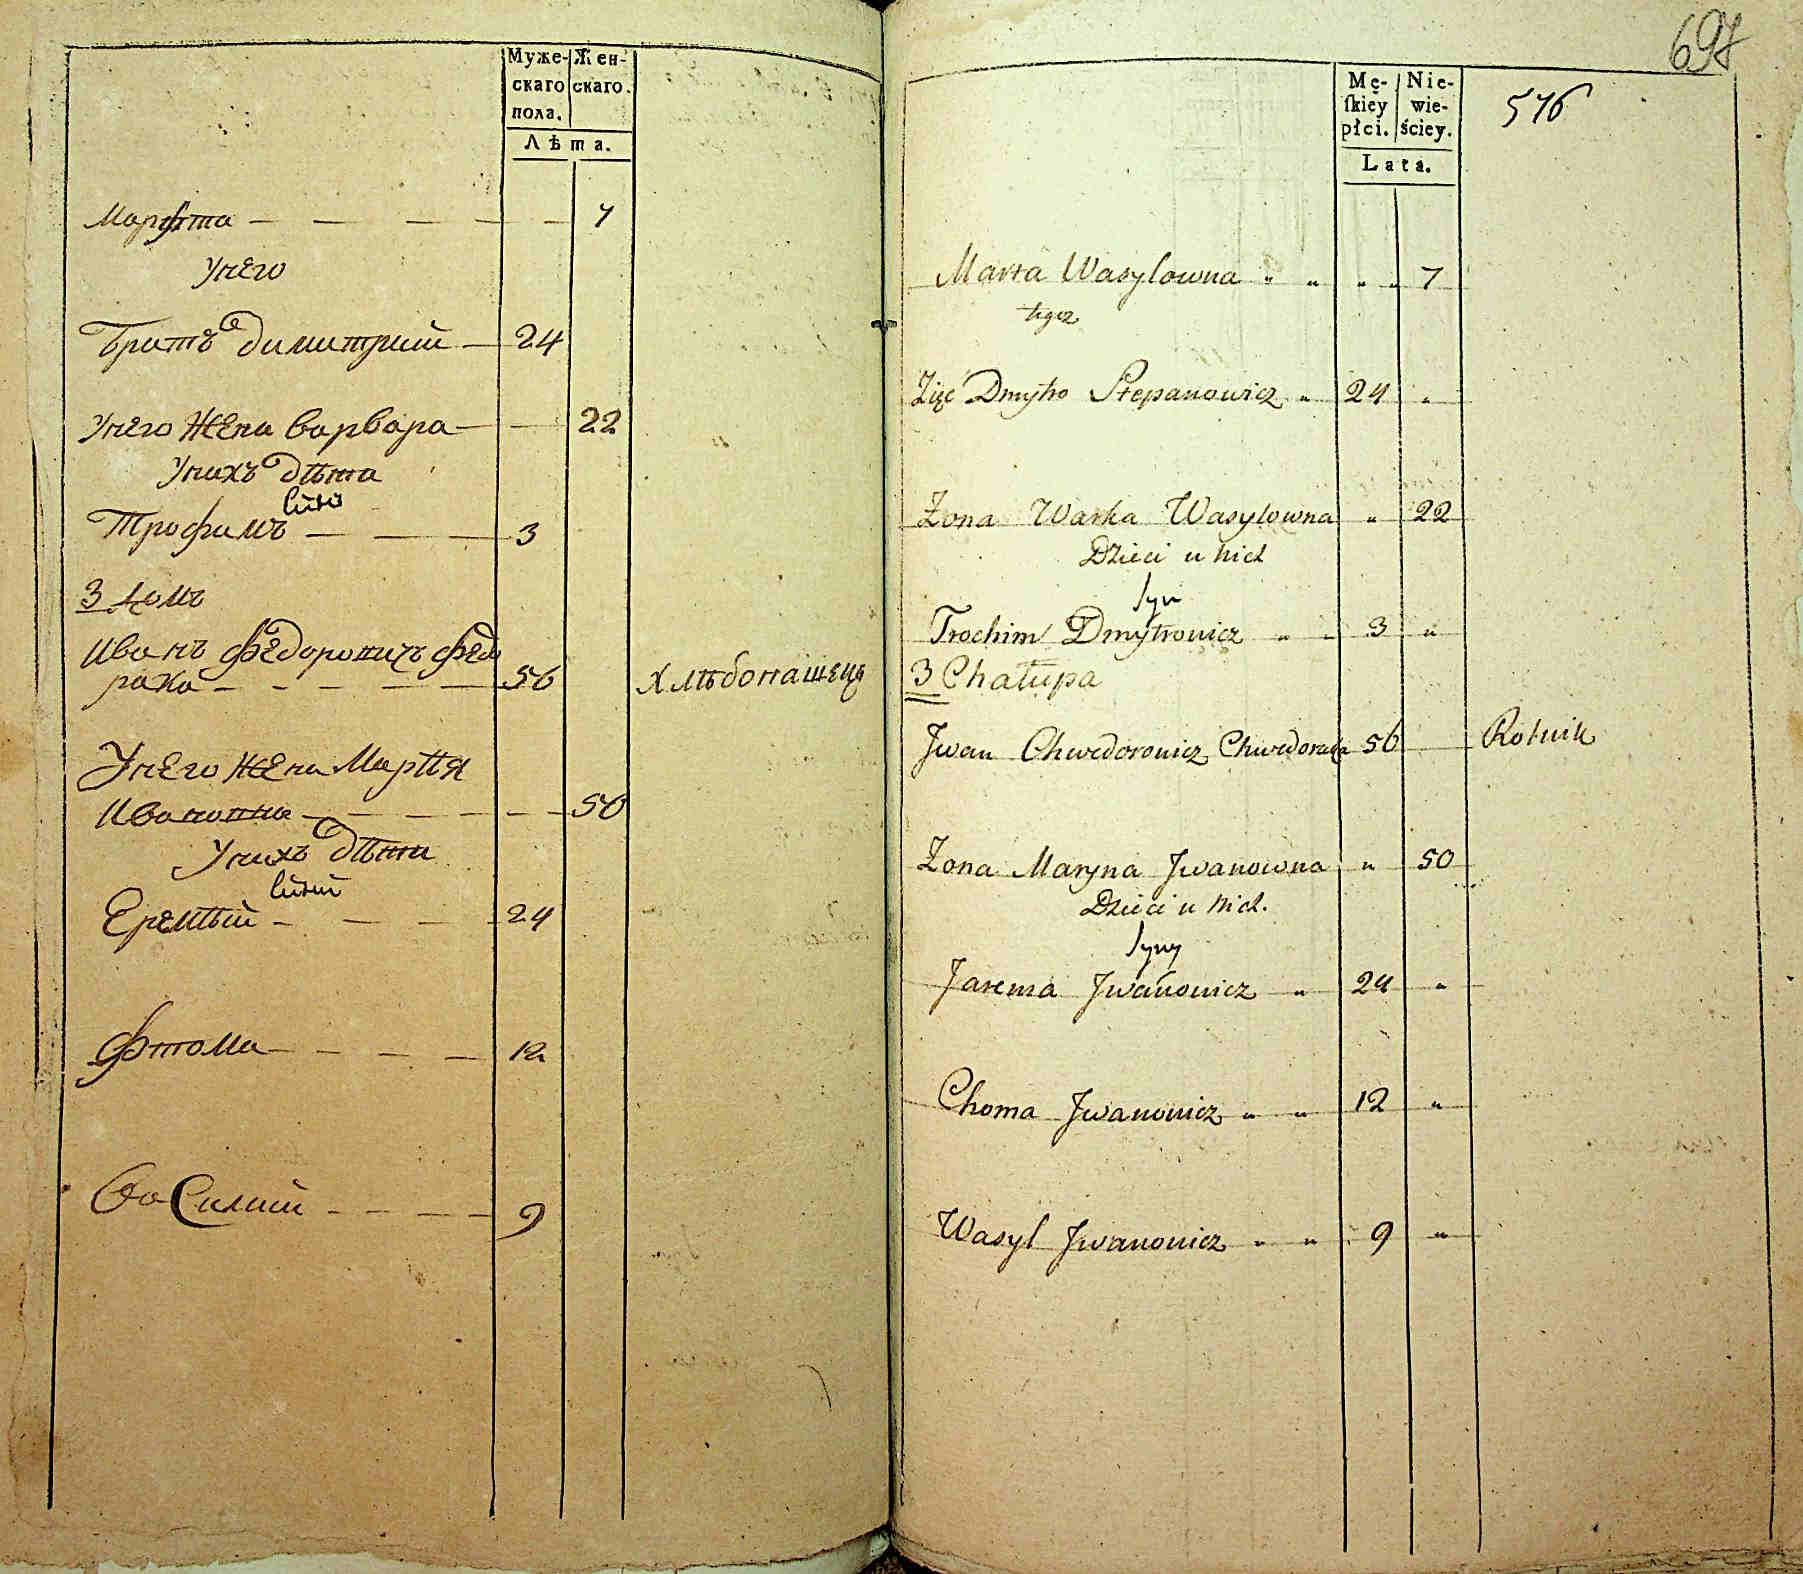 Муже-
скаго
пола.
Жен-
скаго.
Лѣта.
Марѳта — — — — — 7
Унего
Братъ димитрий — 24
Унего жена варвара — — 22
Унихъ дѣти
Синъ
Трофимъ — — — 3
3 домъ
Иванъ Федоровичъ Федо
рака — — — — — 56 хлѣбопашецъ
Унего жена Марѣя
Ивановна — — — — — 50
Унихъ дѣти
Сини
Еремѣй — — — — 24
Фтома — — — — 12
Василий — — — — 9
697
576
Mę-
ſkiey
płci.
Nie-
wie-
ściey.
Lata.
Marta Wasylowna " " " " 7
tegoz
Zięć Dmytro Stepanowicz " 24 "
Zona Warka Wasylowna " 22
Dzieci u nich
Syn
Trochim Dmytrowicz " " 3 "
3 Chałupa
Jwan Chwedorowicz Chwedoraka 56 Rolnik
Zona Maryna Jwanowna " 50
Dzieci u nich.
Syny
Jarema Jwanowicz " 24 "
Choma Jwanowicz " " 12 "
Wasyl Jwanowicz " " 9 "